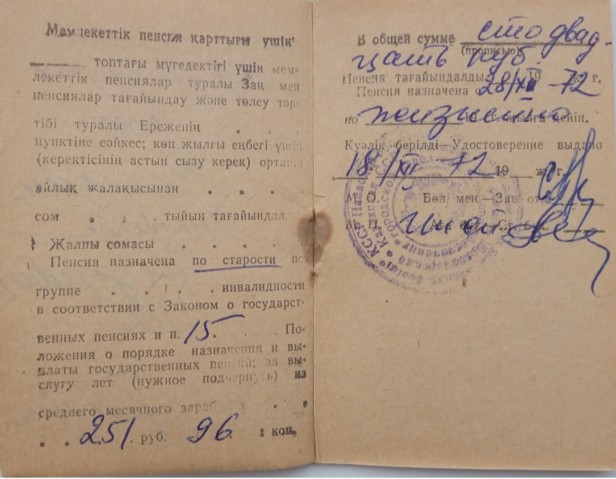 Мемлекеттік пенсия қарттығы үшін
топтағы мүгедектігі үшін мем-
лекеттік пенсиялар туралы Заң мен
пенсиялар тағайындау және төлеу тәр-
тібі туралы Ереженің . . .
пунктіне сәйкес; көп жылғы еңбегі үшін
(керектісінің астын сызу керек) орташа
айлық жалақысынан . . .
сом . . . тыйын тағайындал
Жалпы сомасы . . . .
Пенсия назначена по старости по
группе . . . . инвалидности
в соответствии с Законом о государст-
венных пенсиях и п. 15. . По-
ложения о порядке назначения и вы-
платы государственных пенсий; за вы-
слугу лет (нужное подчеркнуть) из
среднего месячного зараб
. . 251. руб. 96. коп.
В общей сумме сто двад
(прописью)
цать руб.
Пенсия тағайындалды 19 ж. г.
Пенсия назначена 28/XI 72
по пожизненно
Куәлік берілді—Удостоверение выдано
18/XII—72 19 ж. г.
М. О. Бөл. мен—Зав. от
М. П.